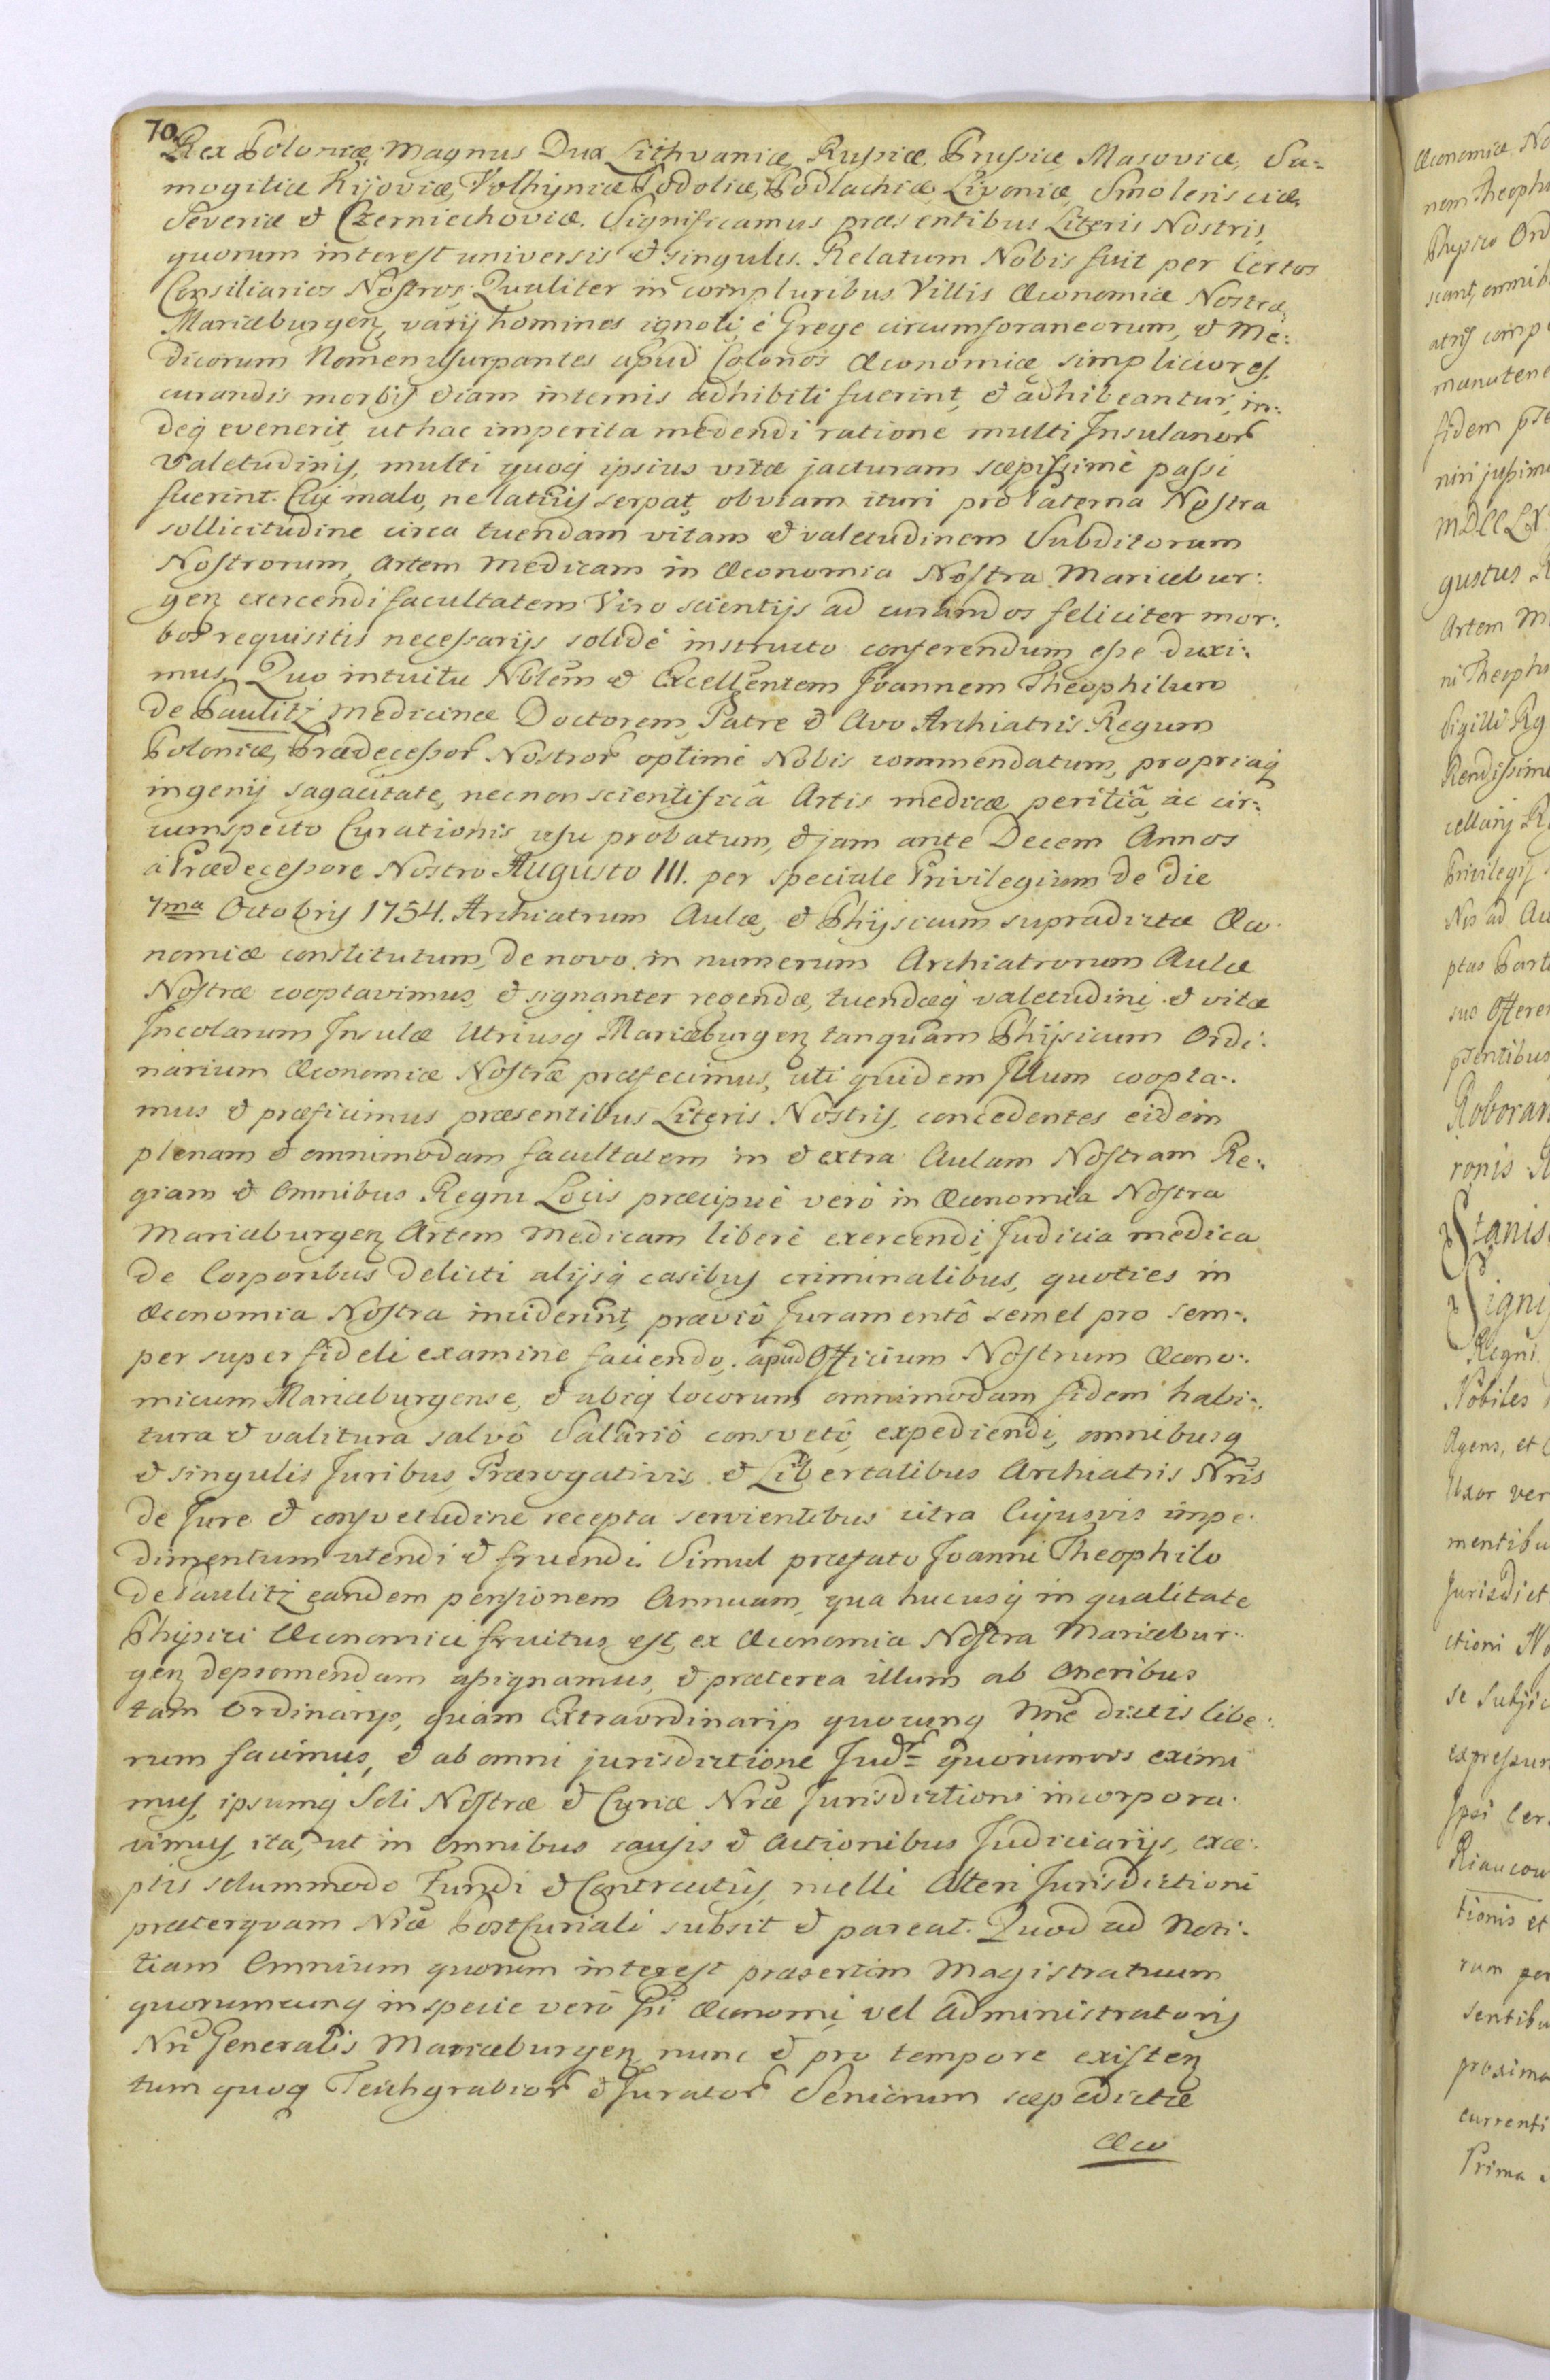 70.
Rex Poloniæ, Magnus Dux Lithvaniæ, Rußiæ, Prußiæ, Masoviæ, Sa=
mogitiæ Kijoviæ, Volhyniæ Podoliæ, Podlachiæ, Livoniæ, Smolensciæ,
Severiæ & Czerniechoviæ. Significamus præsentibus Literis Nostris,
quorum interest universis & singulis. Relatum Nobis fuit per Certos
Consiliarios Nostros; Qualiter in compluribus Villis Œconomiæ Nostræ
Mariæburgen varij homines ignoti, è Grege circumforaneorum, & Me:
dicorum Nomen usurpantes apud Colonos Œconomiæ simpliciores
curandis morbis etiam internis adhibiti fuerint, & adhibeantur, in:
deq evenerit, ut hac imperita medendi ratione multi Insulanor
Valetudinis, multi quoq ipsius vitæ jacturam sæpißimè paßi
fuerint. Cui malo, ne latius serpat, obviam ituri pro Paterna Nostra
sollicitudine circa tuendam vitam & valetudinem Subditorum
Nostrorum, Artem Medicam in Œconomia Nostra Mariæbur:
gen exercendi facultatem Viro scientijs ad curandos feliciter mor:
bos requisitis neceßarijs solidè instructo conferendum eße duxi:
mus. Quo intuitu Nobilem & Excellentem Joannem Theophilum
de Paulitz Medicinæ Doctorem, Patre & Avo Archiatris Regum
Poloniæ, Prædeceßor Nostror optimè Nobis commendatum, propriaq
ingenij sagacitate, necnon scientificâ Artis medicæ peritiâ, ac cir:
cumspecto Curationis usu probatum, & jam ante Decem Annos
à Prædeceßore Nostro Augusto III. per speciale Privilegium de die
7ma Octobris 1754. Archiatrum Aulæ, & Phijsicum supradictæ Œco:
nomiæ constitutum, de novo in numerum Archiatrorum Aulæ
Nostræ cooptavimus, & signanter regendæ, tuendæq valetudini & vitæ
Incolarum Insulæ Utriusq Mariæburgen tanquam Phijsicum Ordi:
narium Œconomiæ Nostræ præfecimus, uti quidem Illum coopta:
mus & præficimus præsentibus Literis Nostris, concedentes eidem
plenam & omnimodam facultatem in & extra Aulam Nostram Re:
giam & Omnibus Regni Locis præcipuè verò in Œconomia Nostra
Mariæburgen Artem Medicam liberè exercendi, Judicia medica
de Corporibus delicti alijsq casibus criminalibus, quoties in
Œconomia Nostra inciderint, præviô Juramentô semel pro sem:
per super fideli examine faciendo, apud Officium Nostrum Œcono:
micum Mariæburgense, & ubiq locorum omnimodam fidem habi:
tura & valitura salvô Salariô consvetô, expediendi, omnibusq
& singulis Juribus, Prærogativis & Libertatibus Archiatris Nris
de Jure & consvetudine recepta servientibus citra Cujusvis impe:
dimentum utendi & fruendi. Simul præfato Joanni Theophilo
de Paulitz eandem pensionem Annuam, qua hucusq in qualitate
Phijsici Œconomici fruitus est, ex Œconomia Nostra Mariæbur:
gen depromendam aßignamus, & præterea illum ab Oneribus
tam Ordinarijs, quàm Extraordinarijs quocunq Nne dictis libe:
rum facimus, & ab omni jurisdictione Judr quorumvis eximi
mus, ipsumq Soli Nostræ & Curiæ Nræ Jurisdictioni incorpora:
vimus, ita, ut in Omnibus causis & Actionibus Judiciarijs, exce:
ptis solummodo Fundi & Contractus, nulli Alteri Jurisdictioni
præterquam Nræ PostCuriali subsit & pareat. Quod ad Noti:
tiam Omnium quorum interest præsertim Magistratuum
quorumcunq in specie verò Œconomi, vel Administratoris
Nri Generalis Mariæburgen nunc & pro tempore existen
tum quoq Teichgrabior & Jurator Seniorum sæpedictæ
Œco
Œconomiæ No
nem Theoph
Phÿsico Ord
sciant, omnib
atrijs comp
manutene
fidem pse
niri jußim
MDCCLX
gustus R
Artem M
ni Theoph
Sigilli Rg
Rendißim
cellarij R
Privilegij
Nis ad Au
ptas Part
suo Offere
psentibus
Roboran
ronis R
Stanis
Signi
Regni
Nobiles
Agens, et
Uxor ver
mentibu
Jurisdict
ctioni No
se Subjic
expreßum
Ipsi Cer
Riaucou
tionis et
rum per
sentibu
proxima
currenti
Prima